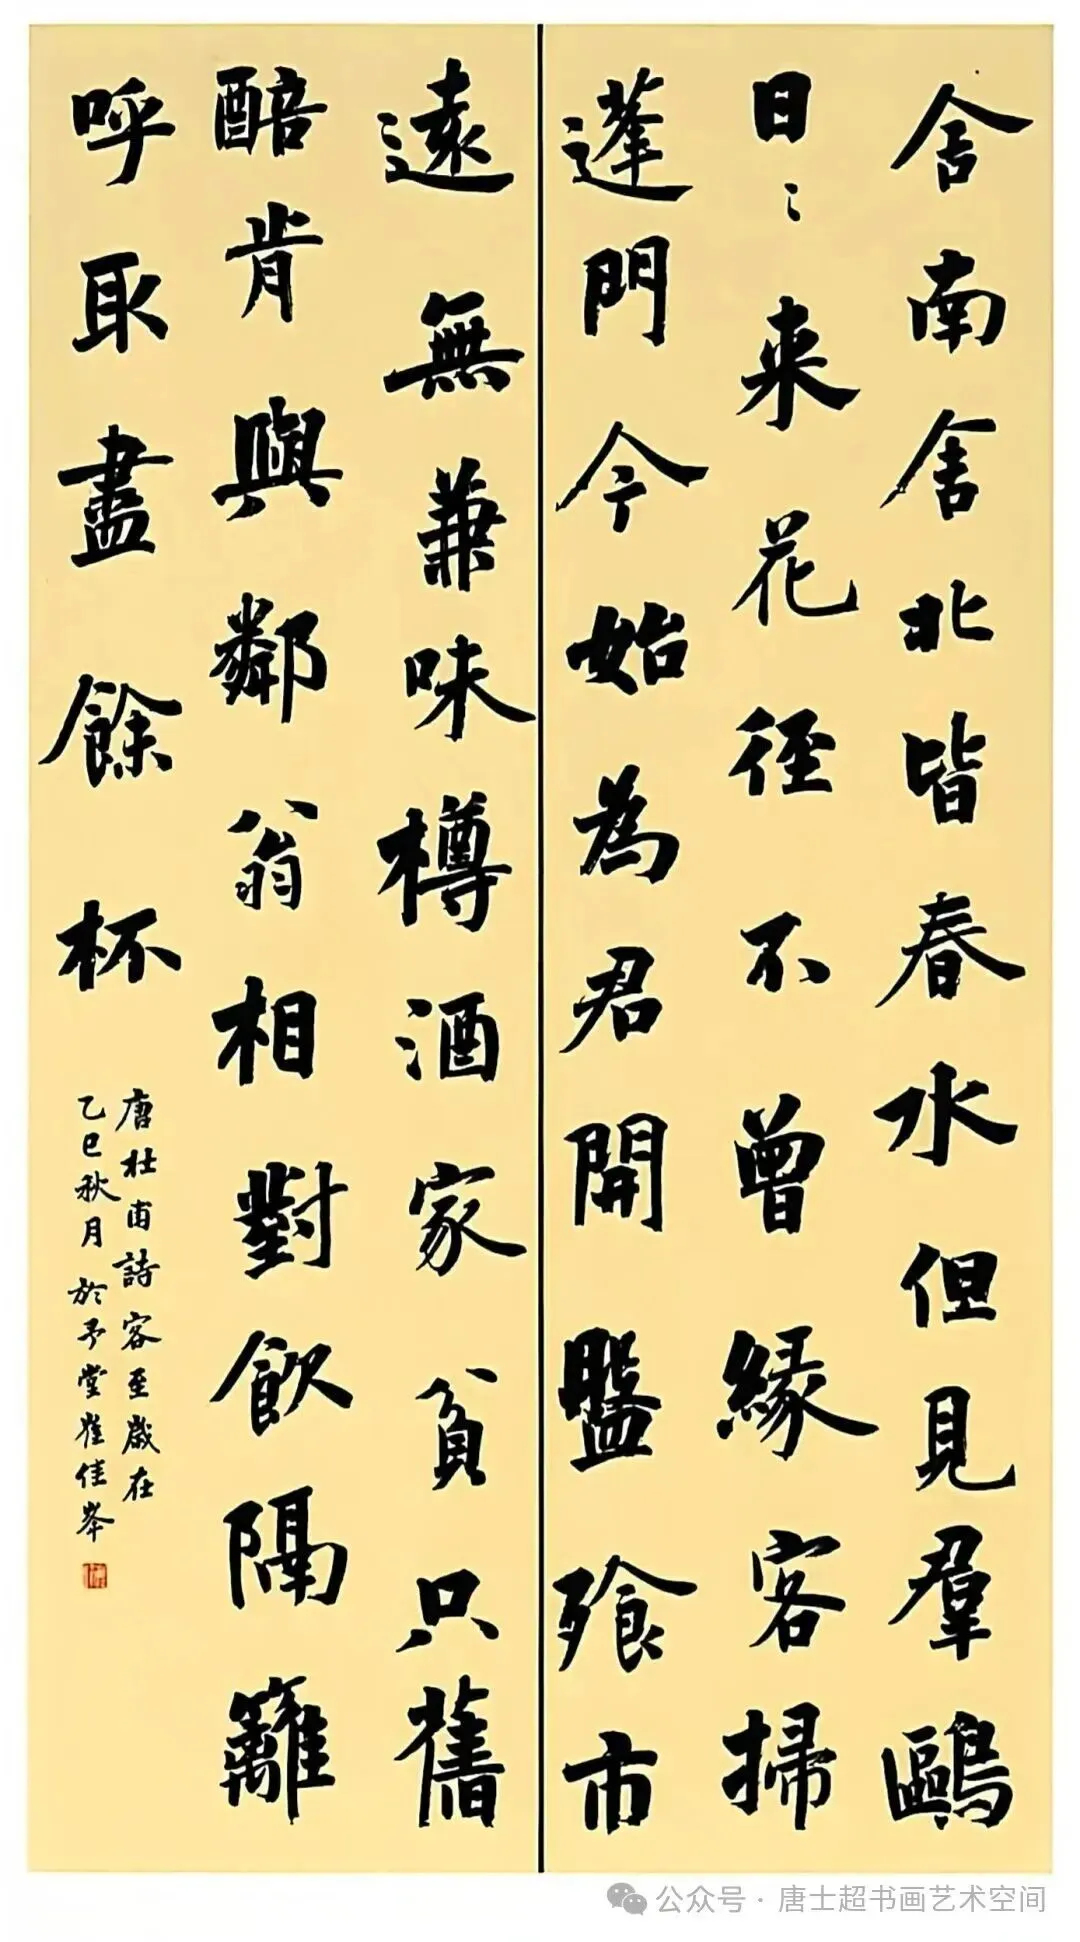 舍南舍北皆春水但見羣鷗
日〻来花徑不曾緣客掃
蓬門今始為君開盤飱市
遠無兼味樽酒家貧只舊
醅肯與鄰翁相對飲隔籬
呼取盡餘杯
唐杜甫詩客至歲在
乙巳秋月於予堂崔佳峯
公众号·唐士超书画艺术空间